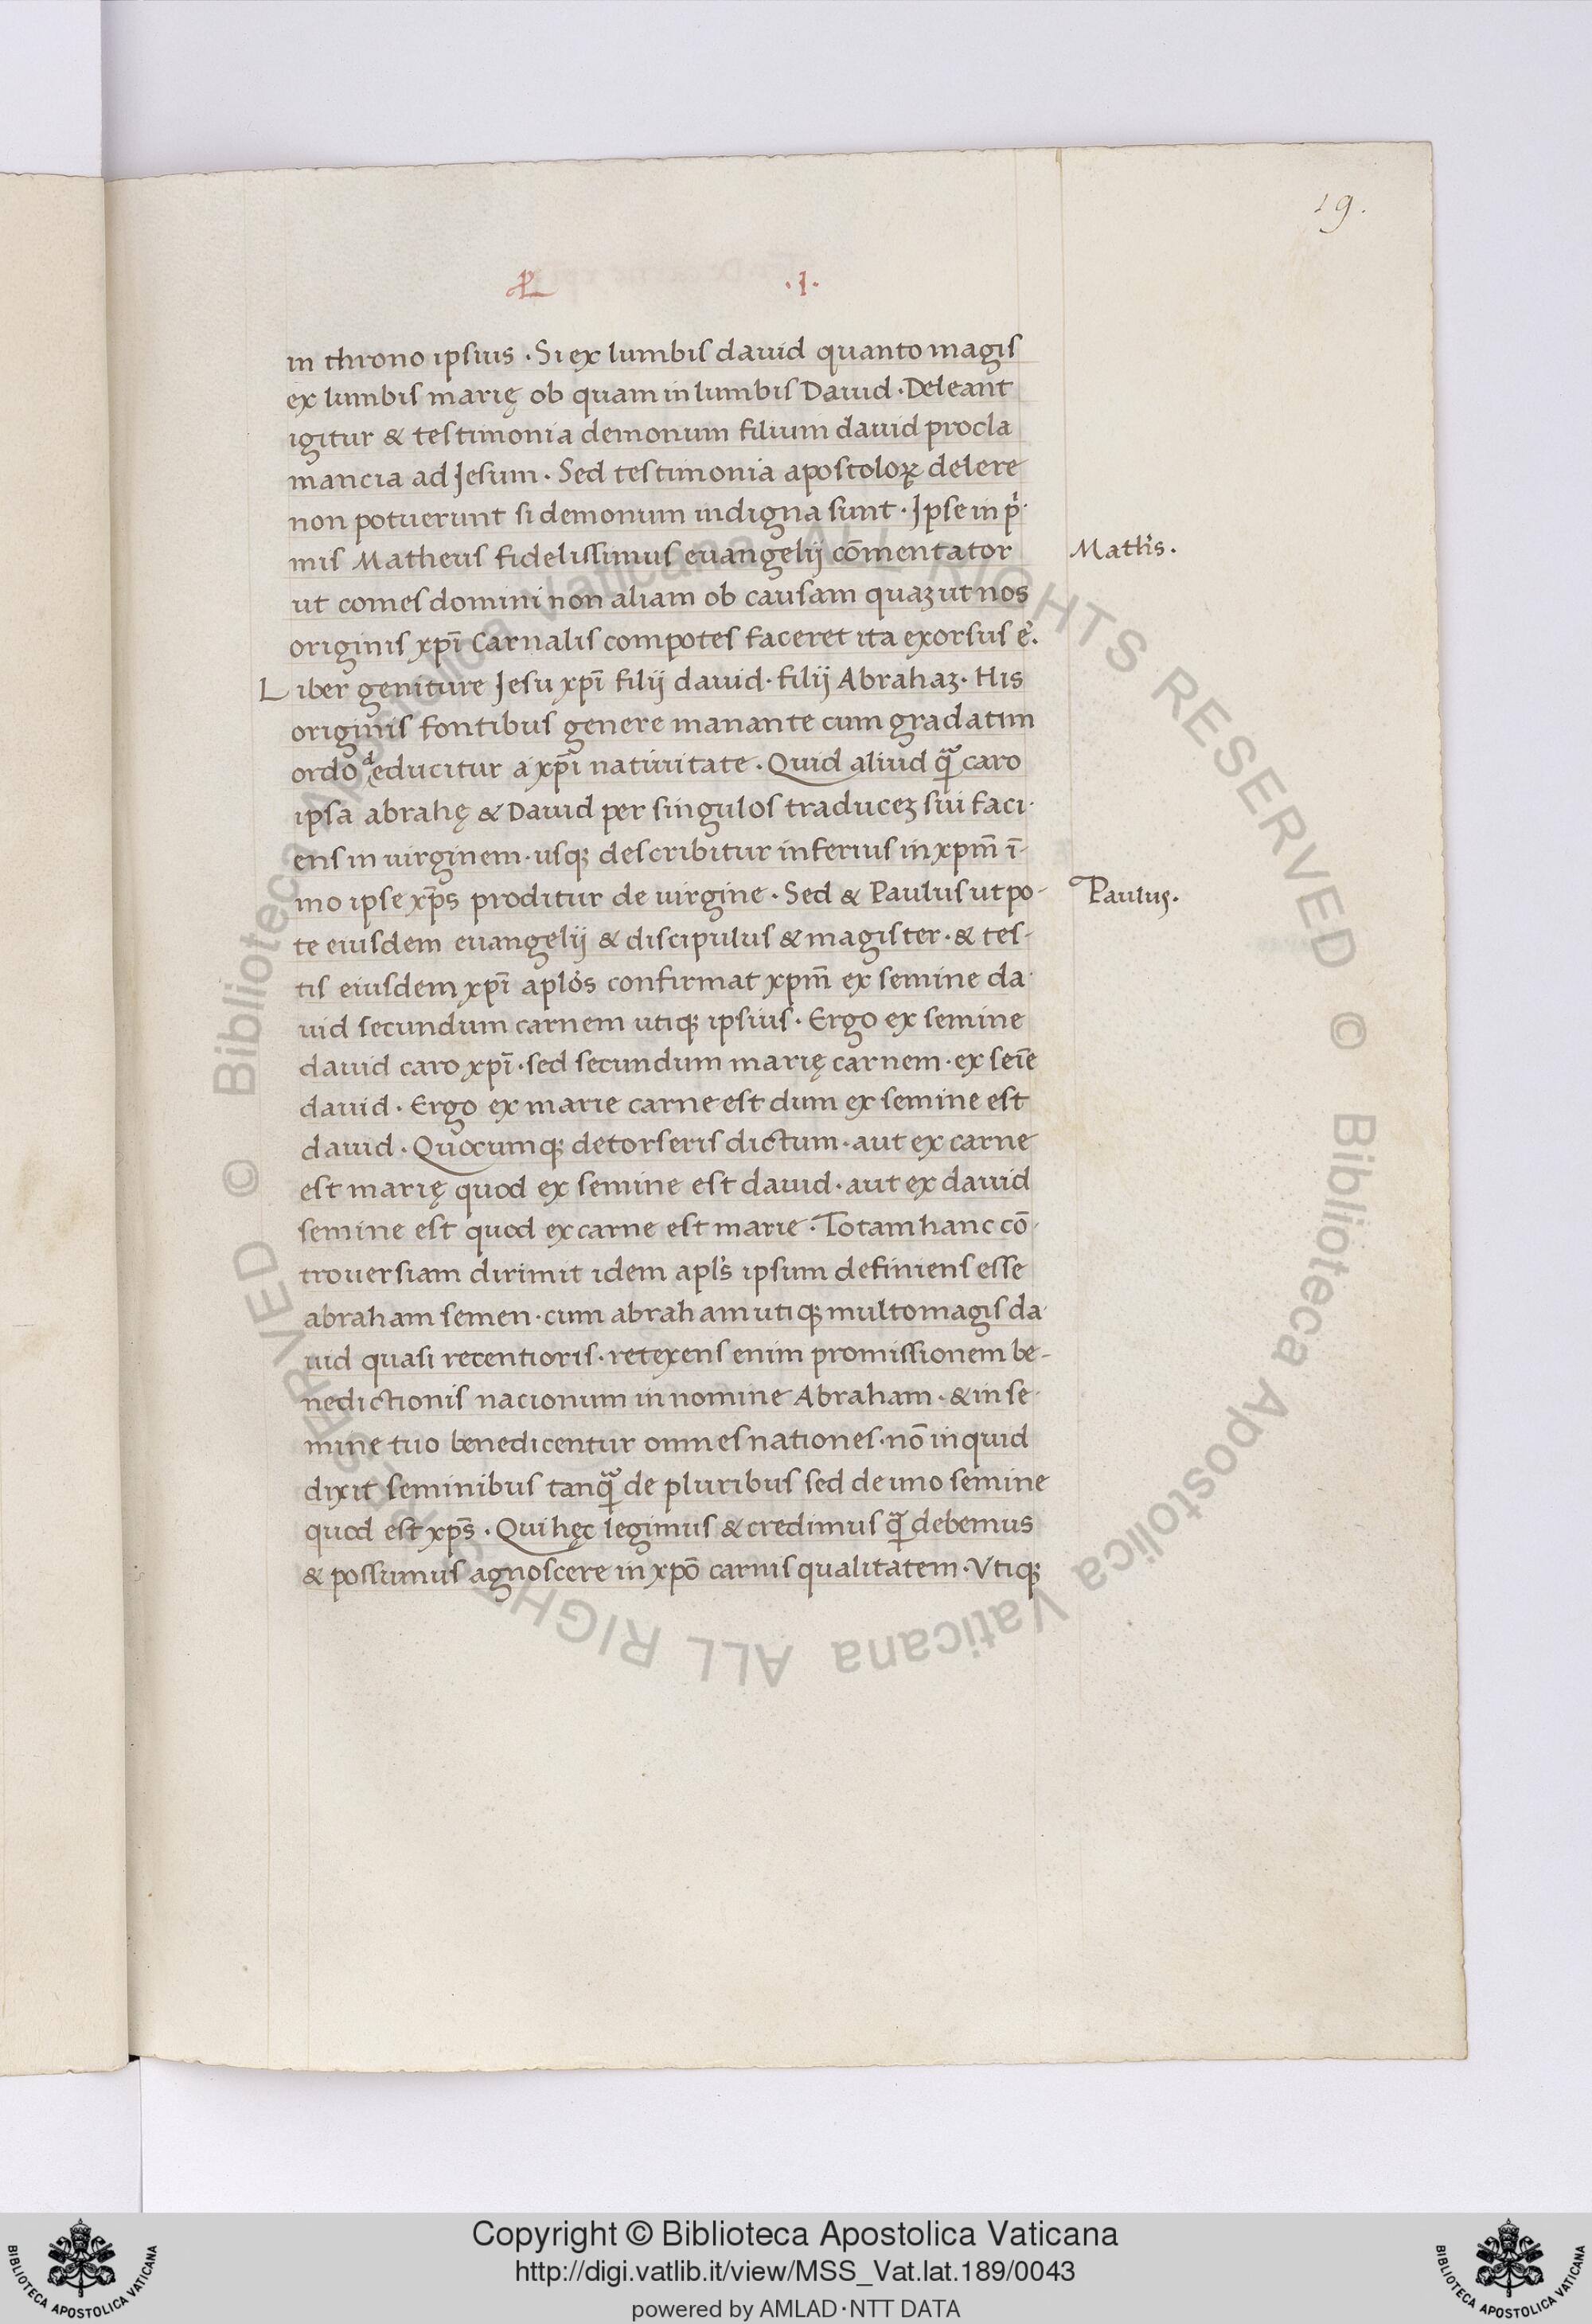 19.
.I.
in throno ipsius . Si ex lumbis dauid quanto magis
ex lumbis marię ob quam in lumbis Dauid . Deleant
igitur & testimonia demonum filium dauid procla
mancia ad Jesum . Sed testimonia apostoloꝝ delere
non potuerunt si demonum indigna sunt . Ipse in pͥ
mis Matheus fidelissimus euangelij cōmentator
Math's .
ut comes domini non aliam ob causam quaꝫ ut nos
originis xpī Carnalis compotes faceret ita exorsus ē .
Liber geniture Jesu xpī filij dauid . filij Abrahaꝫ . His
originis fontibus genere manante cum gradatim
ordo deducitur a xpī natiuitate . Quid aliud qͣ̃ caro
ipsa abrahę & Dauid per singulos traduceꝫ sui faci-
ens in uirginem . usqꝫ describitur inferius in xpm̄ ī-
mo ipse xp̄s proditur de uirgine . Sed & Paulus ut po-
Paulus .
te eiusdem euangelij & discipulus & magister . & tes-
tis eiusdem xpī apl'os confirmat xpm̄ ex semine da-
uid secundum carnem utiqꝫ ipsius . Ergo ex semine
dauid caro xpī . sed secundum marię carnem . ex seīe
dauid . Ergo ex marie carne est dum ex semine est
dauid . Quocumqꝫ detorseris dictum . aut ex carne
est marię quod ex semine est dauid . aut ex dauid
semine est quod ex carne est marie . Totam hanc cō-
trouersiam dirimit idem apl's ipsum definiens esse
abraham semen . cum abraham utiqꝫ multo magis da-
uid quasi recentioris . retexens enim promissionem be-
nedictionis nacionum in nomine Abraham . & in se-
mine tuo benedicentur omnes nationes . nō inquid
dixit seminibus tanqͣ̃ de pluribus sed de uno semine
quod est xp̄s . Qui hęc legimus & credimus qͣ̃ debemus
& possumus agnoscere in xpō carnis qualitatem . Vtiqꝫ
© Biblioteca Apostolica Vaticana ALL RIGHTS RESERVED © Biblioteca Apostolica Vaticana ALL RIGHTS RESERVED
Copyright © Biblioteca Apostolica Vaticana
http://digi.vatlib.it/view/MSS_Vat.lat.189/0043
powered by AMLAD·NTT DATA
BIBLIOTECA APOSTOLICA VATICANA
BIBLIOTECA APOSTOLICA VATICANA